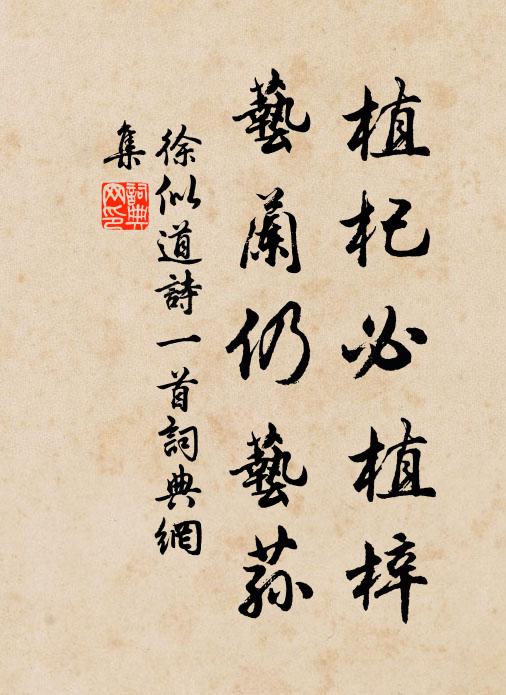 植杞必植梓
藝蘭仍藝蓀
徐似道詩一首詞典網
集
詞典網印